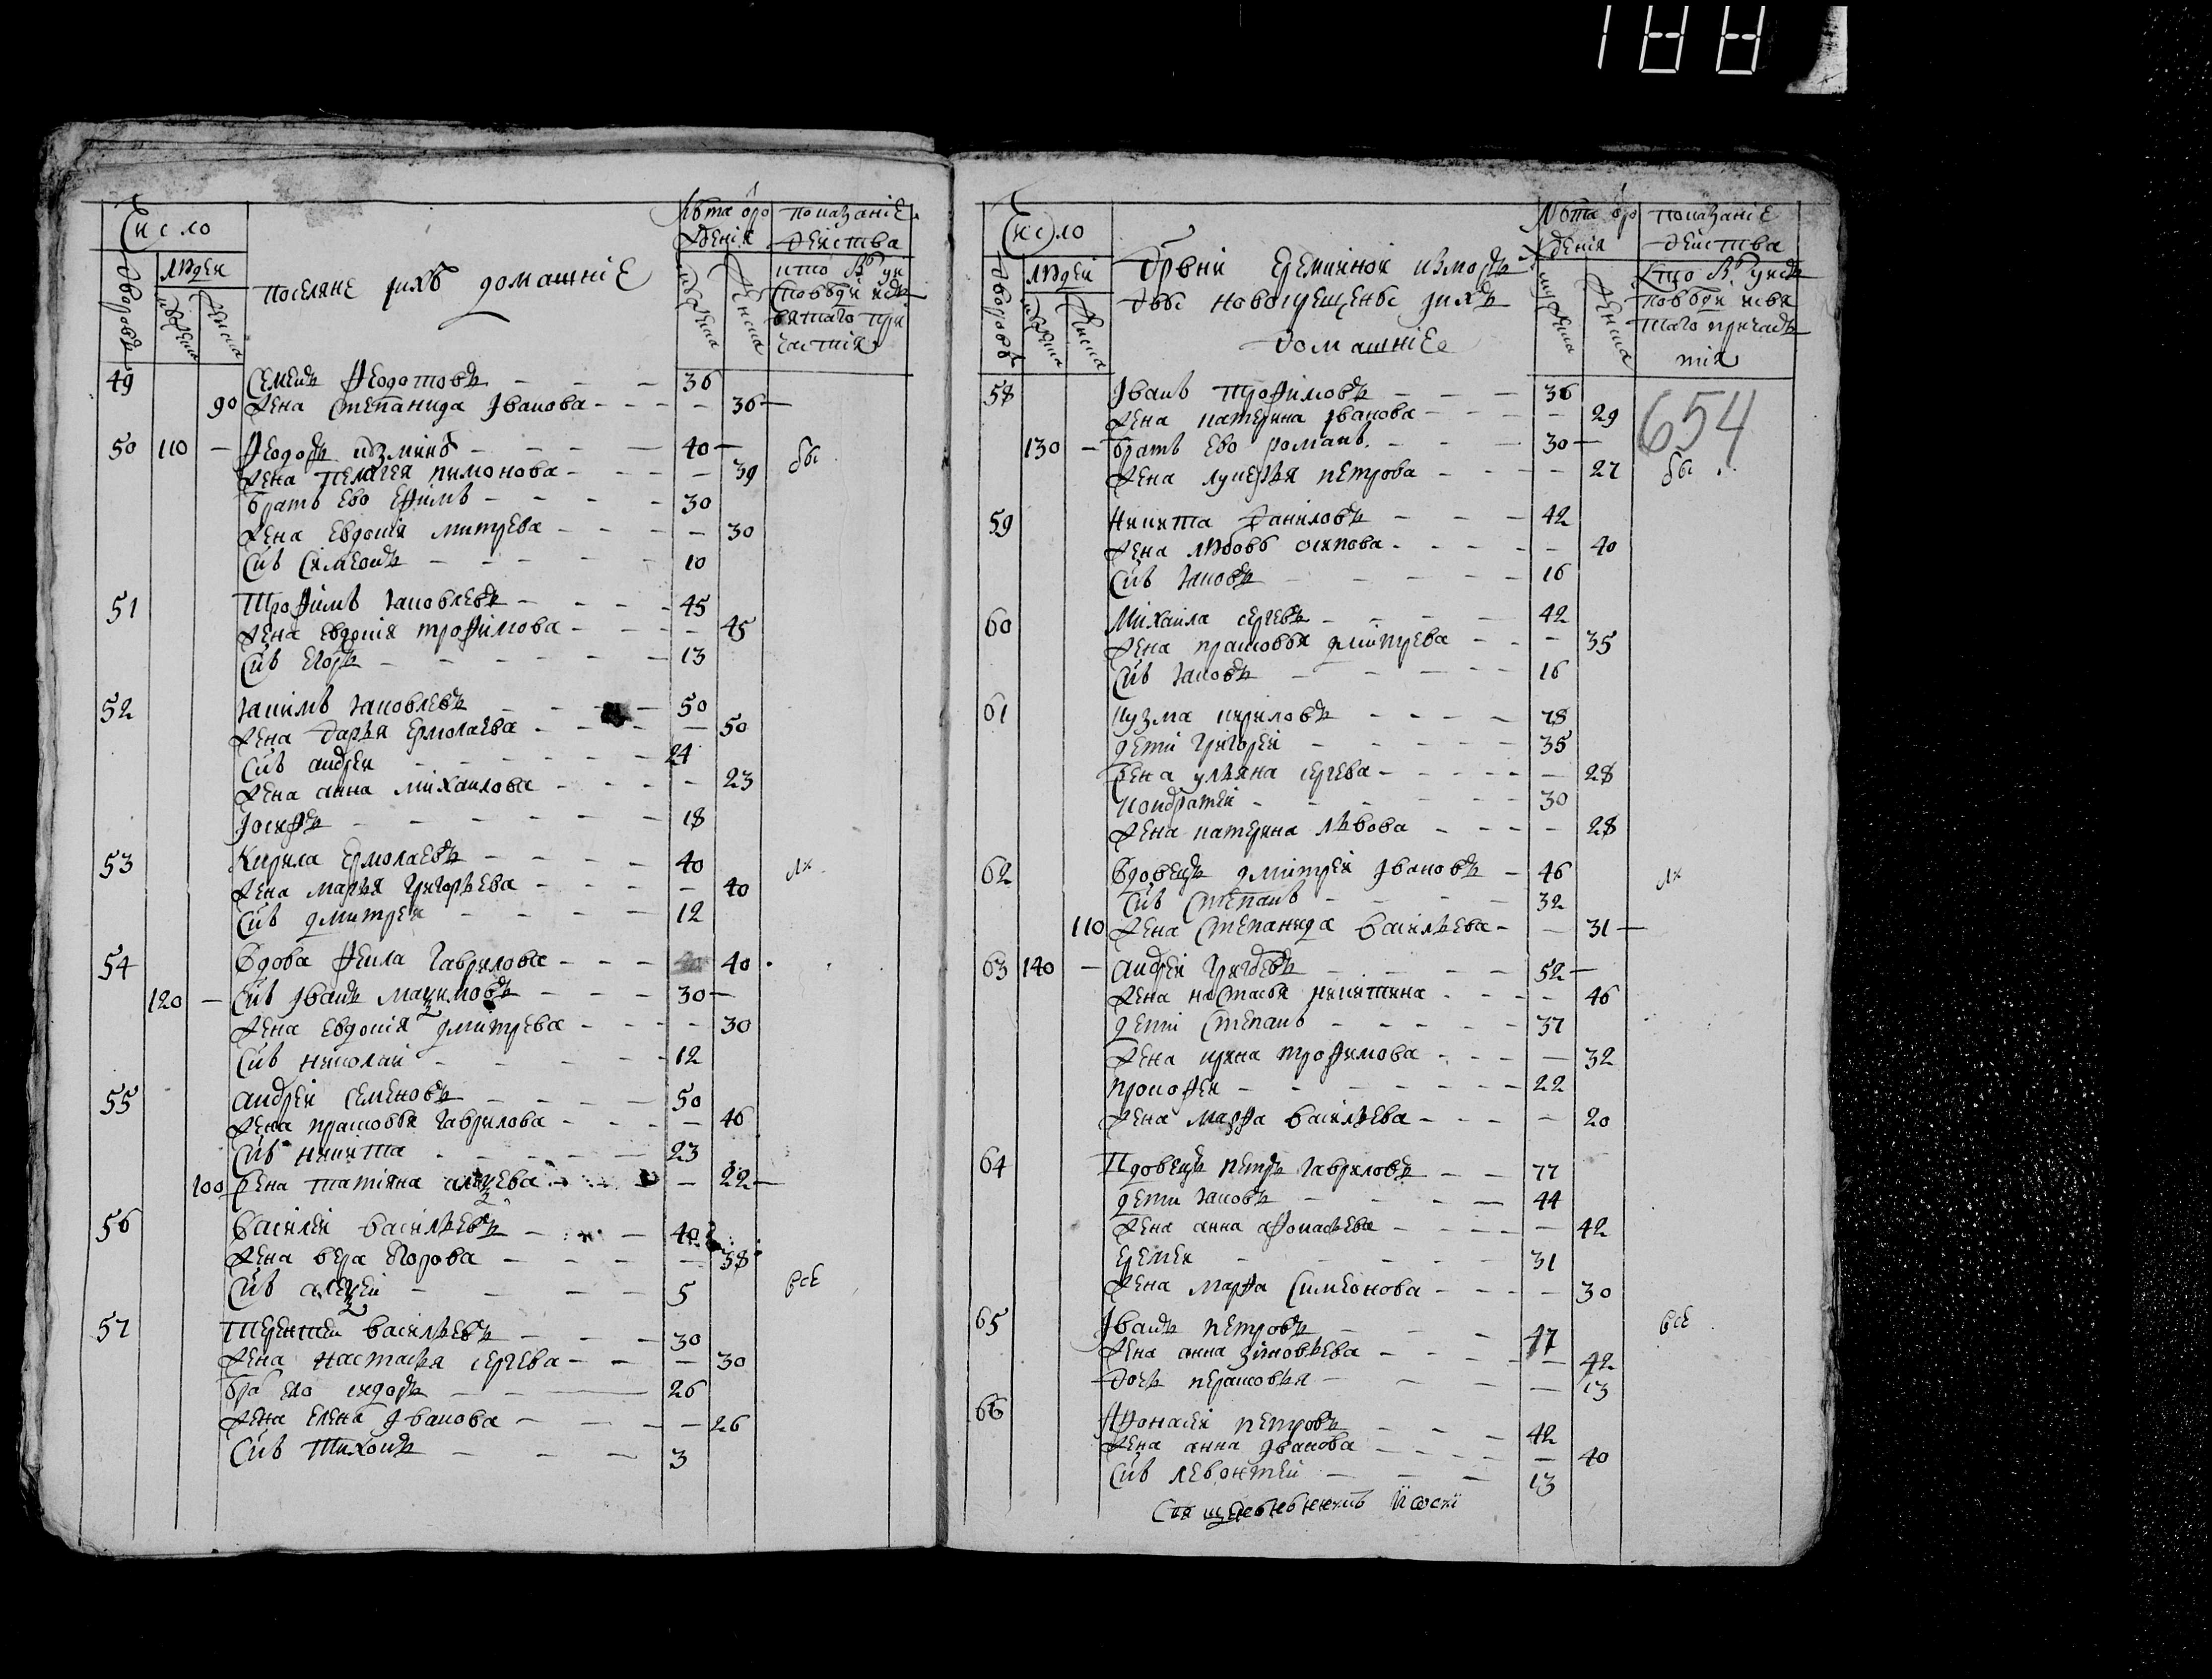 188
Число
Дворовъ
людей
мужеска
женска
поселяне ихъ домашніе
Лѣта ѿ рожденія
мужеска
женска
показаніе
действа
кто
былъ у исповѣди и свя
таго при
частия
49 Семенъ Ѳедотовъ - - - 36
90 жена Степанида Іванова - - - - 36 -
50 110 - Ѳедоръ Кузминъ - - - - 40 - бы
жена Пелагея Пимонова - - - - 39
братъ ево Ефимъ - - - - 30
жена Евдокія Митрева - - - - 30
Снъ Симеонъ - - - - 10
51 Трофимъ Яковлевъ - - - - 45
жена Евдокія Трофимова - - - - 45
Снъ Егоръ - - - - - - 13
52 Якимъ Яковлевъ - - - - 50
жена Дарья Ермолаева - - - - - 50
Снъ Андрей - - - - - - 24
жена Анна Михаилова - - - - - 23
Іосифъ - - - - - - 18
53 Кирила Ермолаевъ - - - - 40 ли
жена Марья Григорьева - - - - 40
Снъ Дмитрей - - - - 12
54 Вдова Фекла Гаврилова - - - 40
120 - Снъ Іванъ Макимовъ - - - 30 -
жена Евдокія Дмитрева - - - - 30
Снъ Николай - - - - - 12
55 Андрей Семеновъ - - - - 50
жена Прасковья Гаврилова - - - - 46
Снъ Никита - - - - - 23
100 жена Татіяна - - - 22 -
56 Василей Васильевъ - - - 40
жена Вера Егорова - - - - 38
Снъ Алекеи - - - - 5 все
57 Терентей Васильевъ - - - 30
жена Настасья Сергева - - - 30
бра ево Сидоръ - - - 26
жена Елена Іванова - - - - 26
Снъ Тихонъ - - - 3
Число
Дворовъ
людей
мужеска
женска
Дрвни Еремкиной из морд
двы новокрещены ихъ
домашніе
Лѣта ѿ рожденія
мужеска
женска
показаніе
действа
Кто
654
58 Іванъ Трофимовъ - - - 36
жена Катерина Іванова - - - - 29
130 - братъ ево Романъ - - - 30 -
жена Лукерья Петрова - - - - 27 бы
59 Никита Даниловъ - - - 42
жена Любовь Осипова - - - - - 40
Снъ Яковъ - - - - - 16
60 Михаила Сергевъ - - - - 42
жена Прасковья Дмитрева - - - 35
Снъ Яковъ - - - - 16
61 Кузма Кириловъ - - - - 78
дети Григорей - - - - - 35
жена Ульяна Сергева - - - - - - 28
Кондратей - - - - - - 30
жена Катерина Львова - - - - 28
62 Вдовецъ Дмитрей Івановъ - 46 ли
Снъ Степанъ - - - - 32
110 жена Степанида Васильева - - 31 -
63 140 - Андрей - - - - 52 -
жена Настасья Никитина - - - - 46
дети Степанъ - - - - - 37
жена Ирина Трофимова - - - - 32
Прокофей - - - - - - - 22
жена Марфа Васильева - - - - 20
64 Вдовецъ Петръ Гавриловъ - - 77
дети Яковъ - - - - 44
жена Анна Афонасьева - - - - - 42
Еремей - - - - - - 31
жена Марфа Симеонова - - - - 30
65 Іванъ Петровъ - - - 47 все
жена Анна Зиновьева - - - - - 42
дочь Перасковья - - - - 13
66 Афонасей Петровъ - - - 42
жена Анна Іванова - - - - - 40
Снъ Левонтей - - - 13